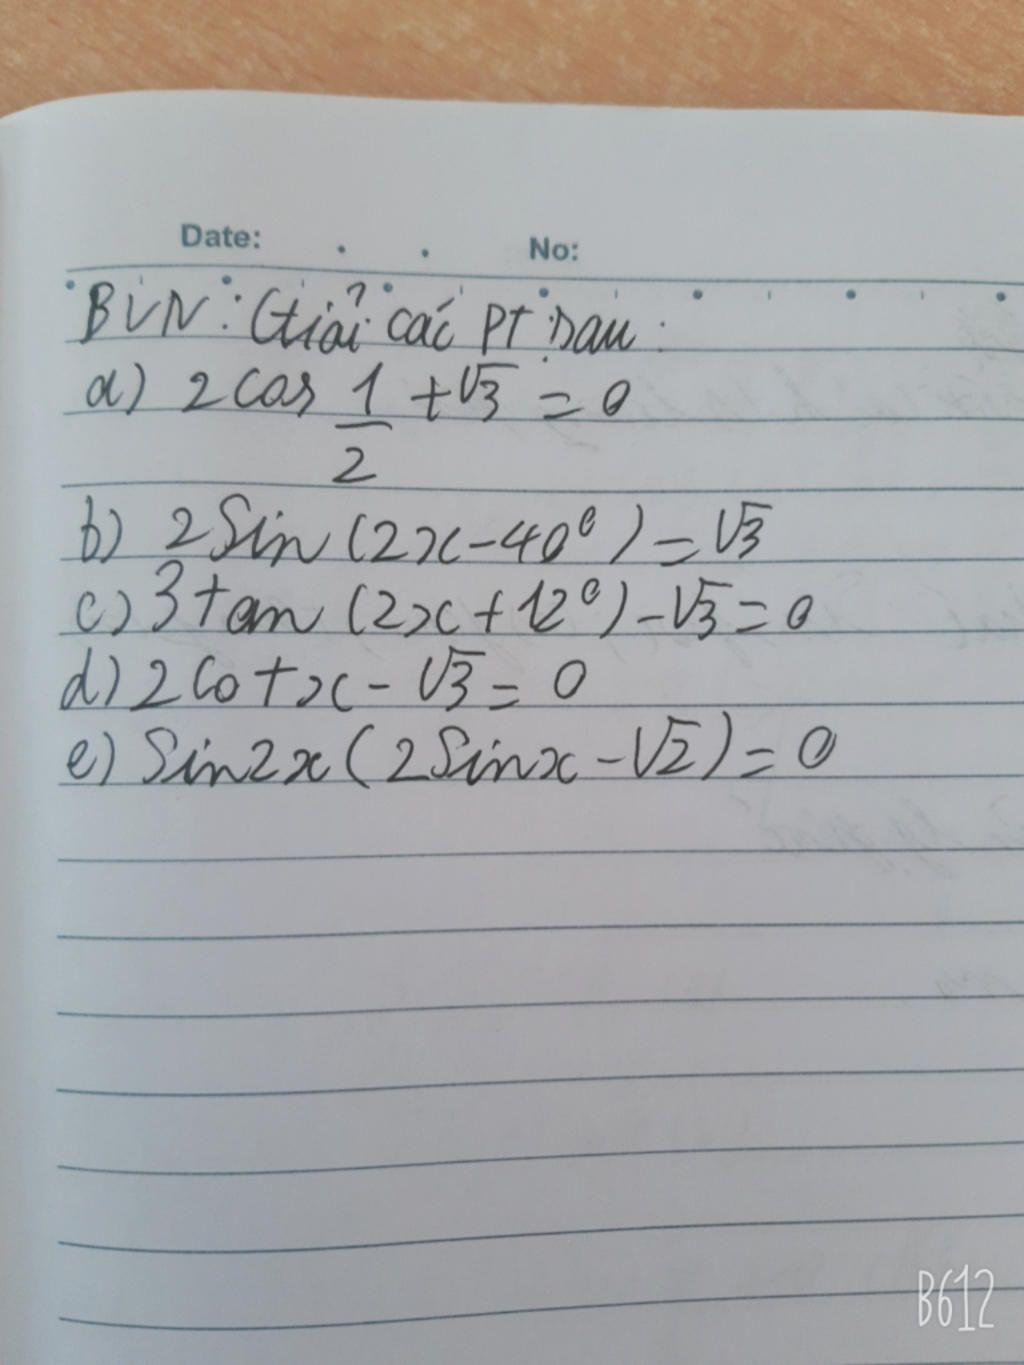 Date: . . No:
BVN: Giải các PT sau:
a) 2cos 1/2 + √3 = 0
b) 2Sin (2x - 40°) = √3
c) 3tan (2x + 12°) - √3 = 0
d) 2Cotx - √3 = 0
e) Sin2x (2Sinx - √2) = 0
B612